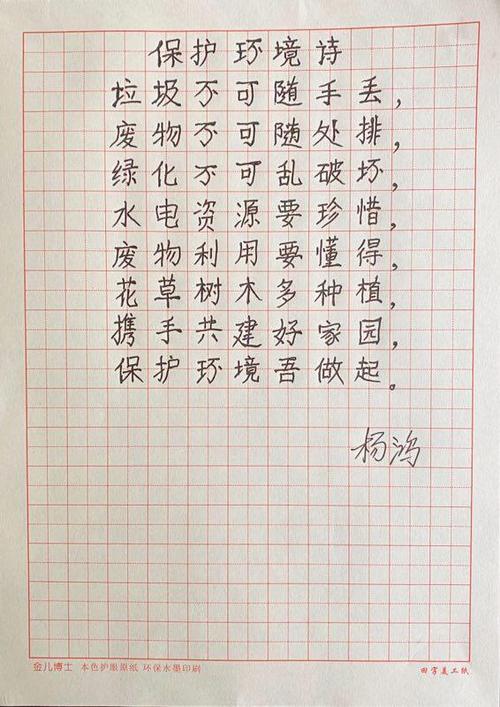 保护环境诗
垃圾不可随手丢，
废物不可随处排，
绿化不可乱破坏，
水电资源要珍惜，
废物利用要懂得，
花草树木多种植，
携手共建好家园，
保护环境吾做起。
杨鸿
金儿博士 本色护眼原纸 环保水墨印刷
田字美工纸